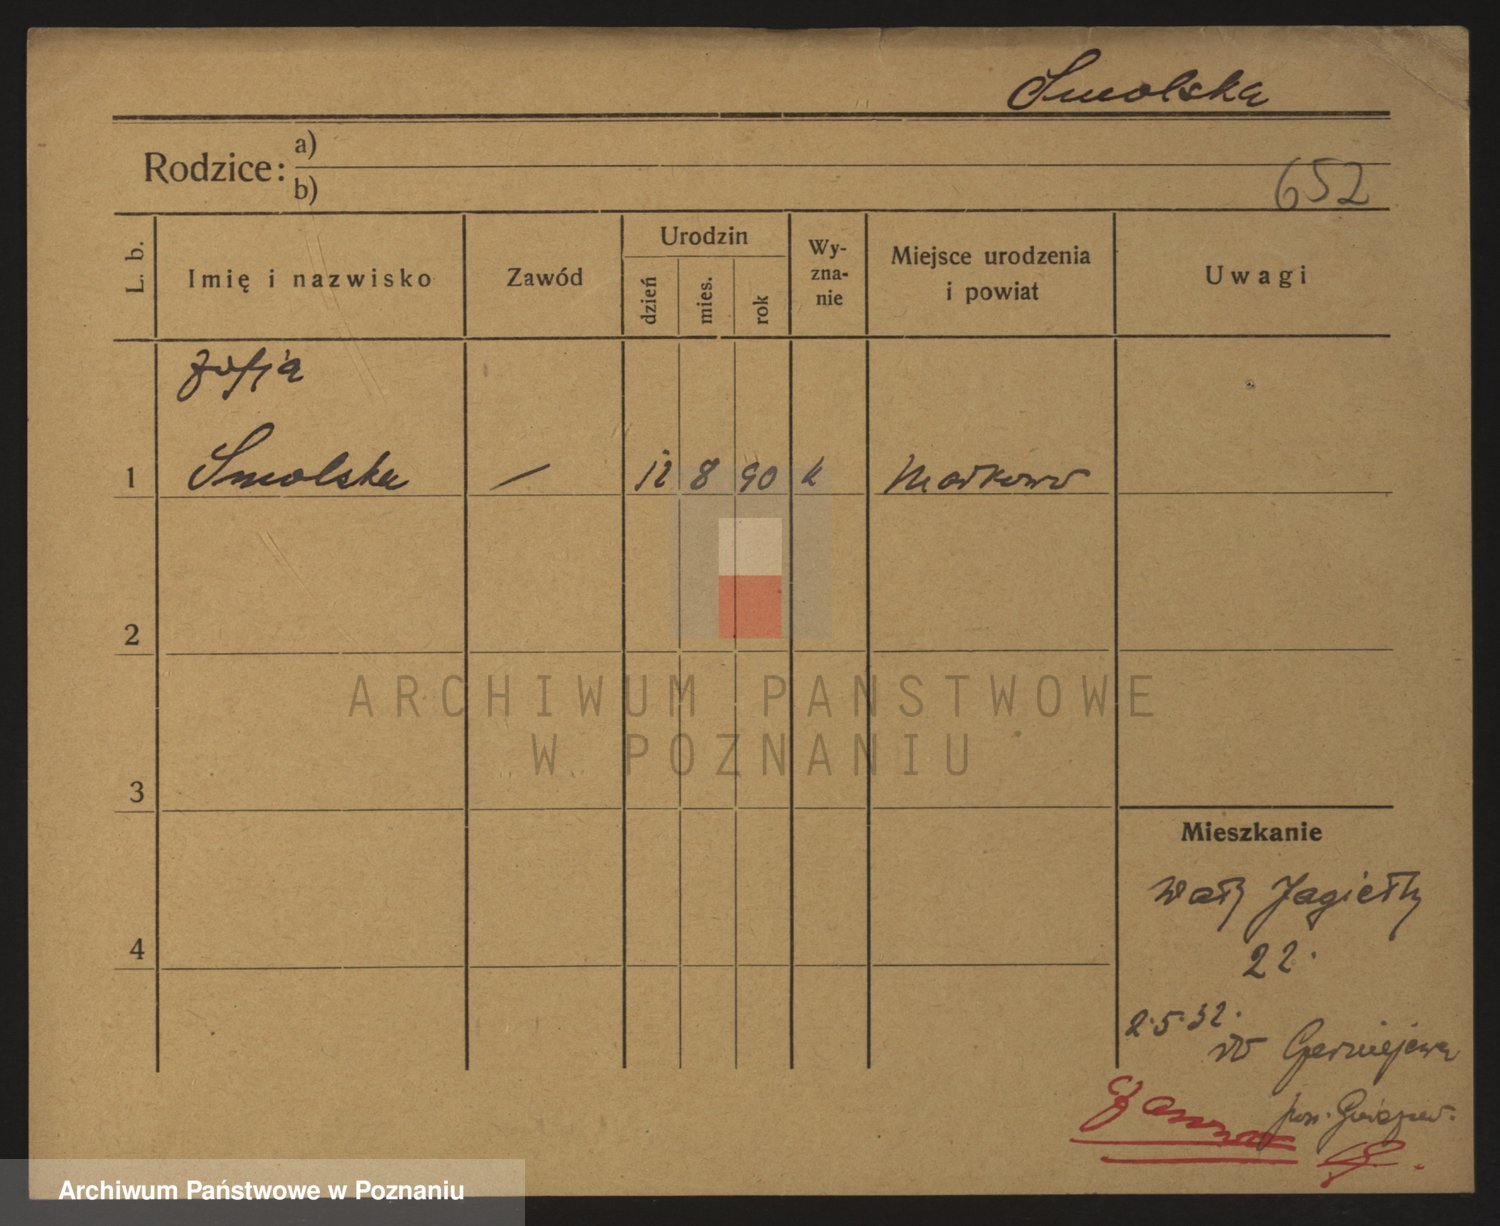 Smolska
Rodzice: a)
b)
652
L. b.
Imię i nazwisko
Zawód
Urodzin
dzień
mies.
rok
Wy-
zna-
nie
Miejsce urodzenia
i powiat
Uwagi
Zofja
1 Smolska — 12 8 90 k Markowo
2
3
4
Mieszkanie
Wały Jagiełły
22.
2.5.32.
do
pow. Gnieznow.
ARCHIWUM PANSTWOWE
W POZNANIU
Archiwum Państwowe w Poznaniu